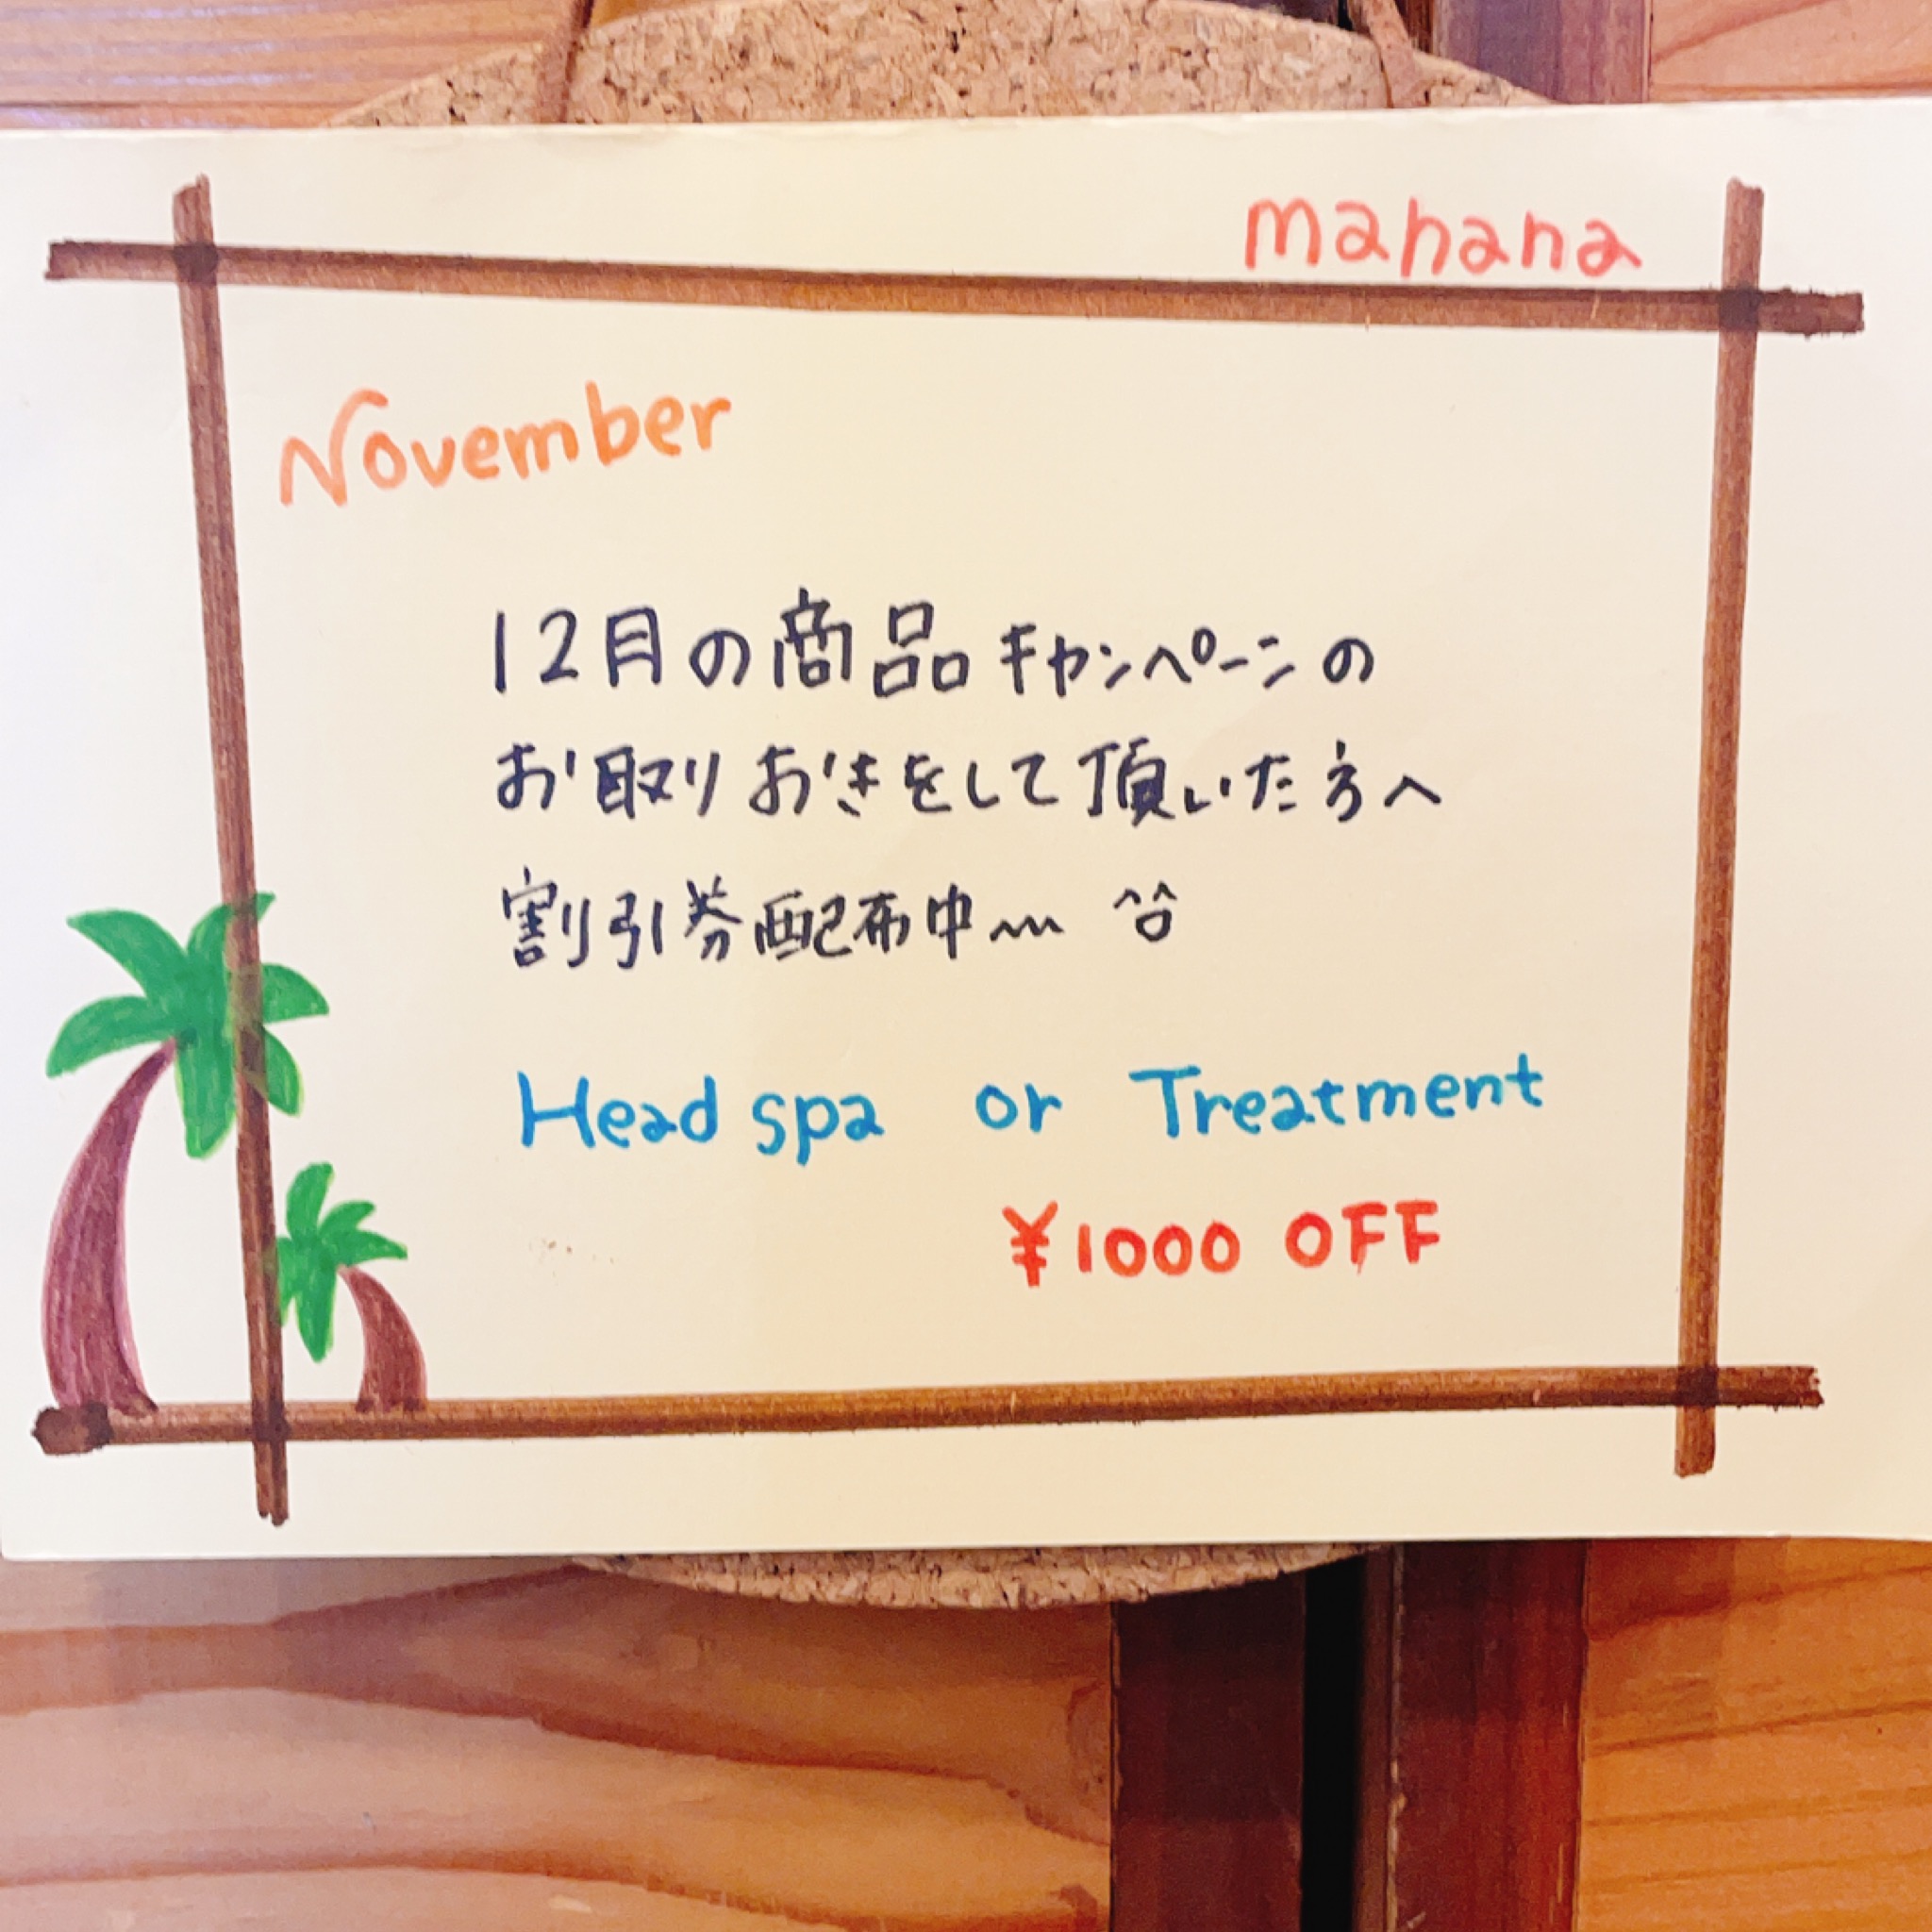 mahana
November
12月の商品キャンペーンの
お取りおきをして頂いた方へ
割引券配布中〰 ^o^
Head spa or Treatment
¥1000 OFF